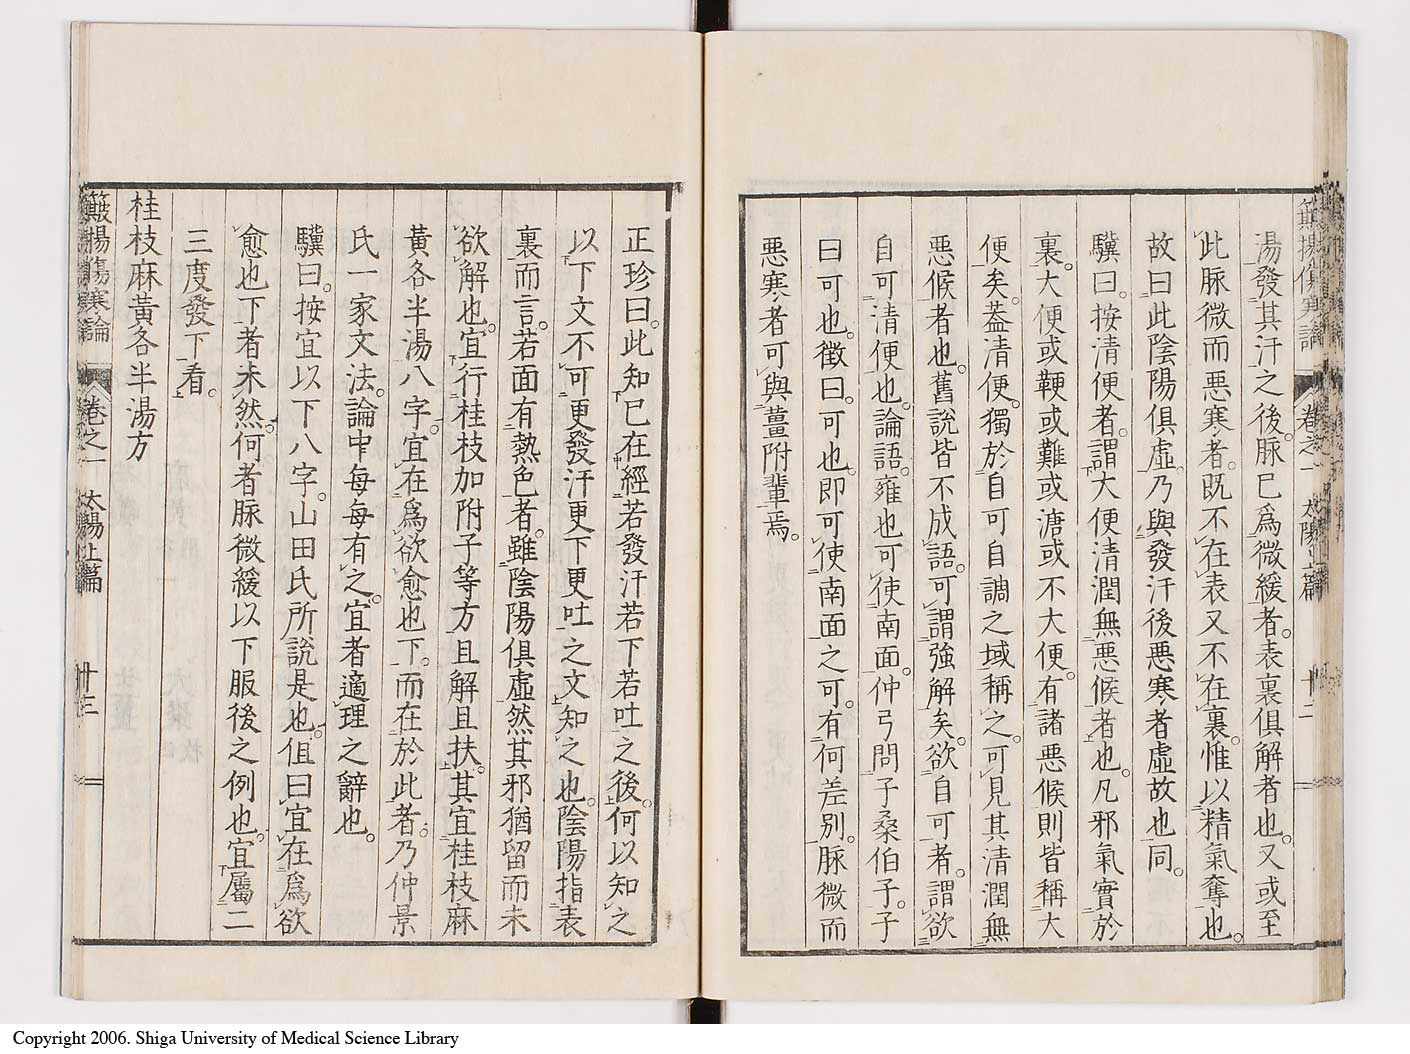 湯發其汗之後。脉已爲微緩者。表裏俱解者也。又或至
此脉微而惡寒者。既不在表又不在裏。惟以精氣奪也。
故曰此陰陽俱虛。乃與發汗後惡寒者虛故也同。
驥曰。按清便者。謂大便清潤無惡候者也。凡邪氣實於
裏。大便或鞕或難或溏或不大便。有諸惡候則皆稱大
便矣。蓋清便。獨於自可自調之域稱之。可見其清潤無
惡候者也。舊說皆不成語。可謂強解矣。欲自可者。謂欲
自可清便也。論語。雍也可使南面。仲弓問子桑伯子。子
曰可也。徵曰。可也。即可使南面之可。有何差別。脉微而
惡寒者可與薑附輩焉。
卷之一 太陽上篇
正珍曰。此知已在經若發汗若下若吐之後。何以知之
以下文不可更發汗更下更吐之文知之也。陰陽指表
裏而言。若面有熱色者。雖陰陽俱虛然其邪猶留而未
欲解也。宜行桂枝加附子等方且解且扶。其宜桂枝麻
黃各半湯八字。宜在爲欲愈也下。而在於此者。乃仲景
氏一家文法。論中每每有之。宜者適理之辭也。
驥曰。按宜以下八字。山田氏所說是也。但曰宜在爲欲
愈也下者未然。何者脉微緩以下服後之例也。宜屬二
三度發下看。
桂枝麻黃各半湯方
簸揚傷寒論 卷之一 太陽上篇 廿三
Copyright 2006. Shiga University of Medical Science Library